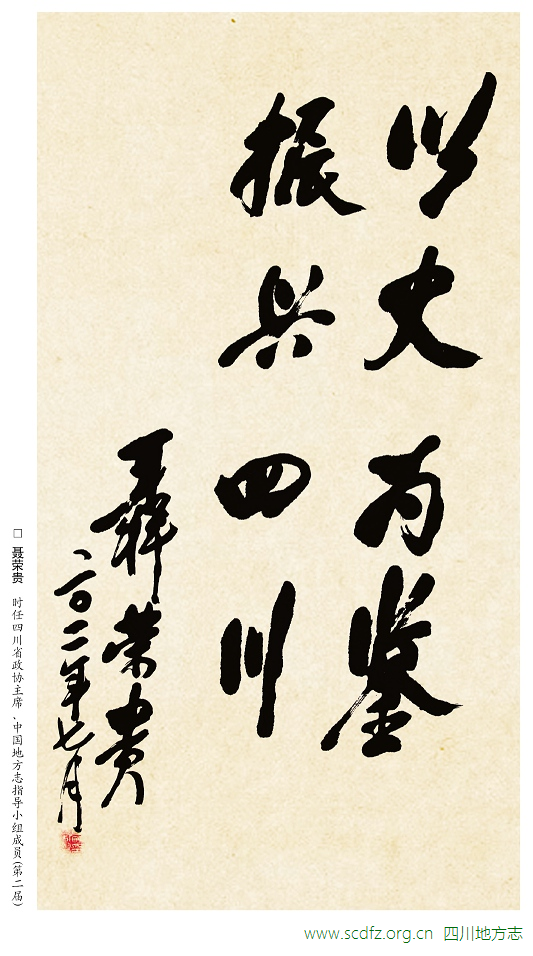 以史为鉴
振兴四川
聂荣贵
二〇〇二年七月
□ 聂荣贵 时任四川省政协主席、中国地方志指导小组成员(第二届)
www.scdfz.org.cn 四川地方志